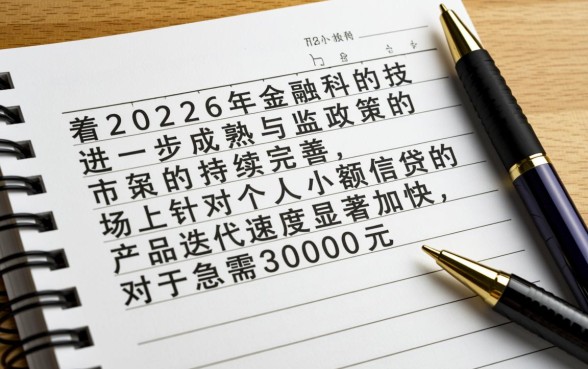 着20226年金融科的技
进一步成熟与监政策的
市场的持续完善，
场上针对个人小额信贷的
产品迭代速度显著加快，
对于急需30000元